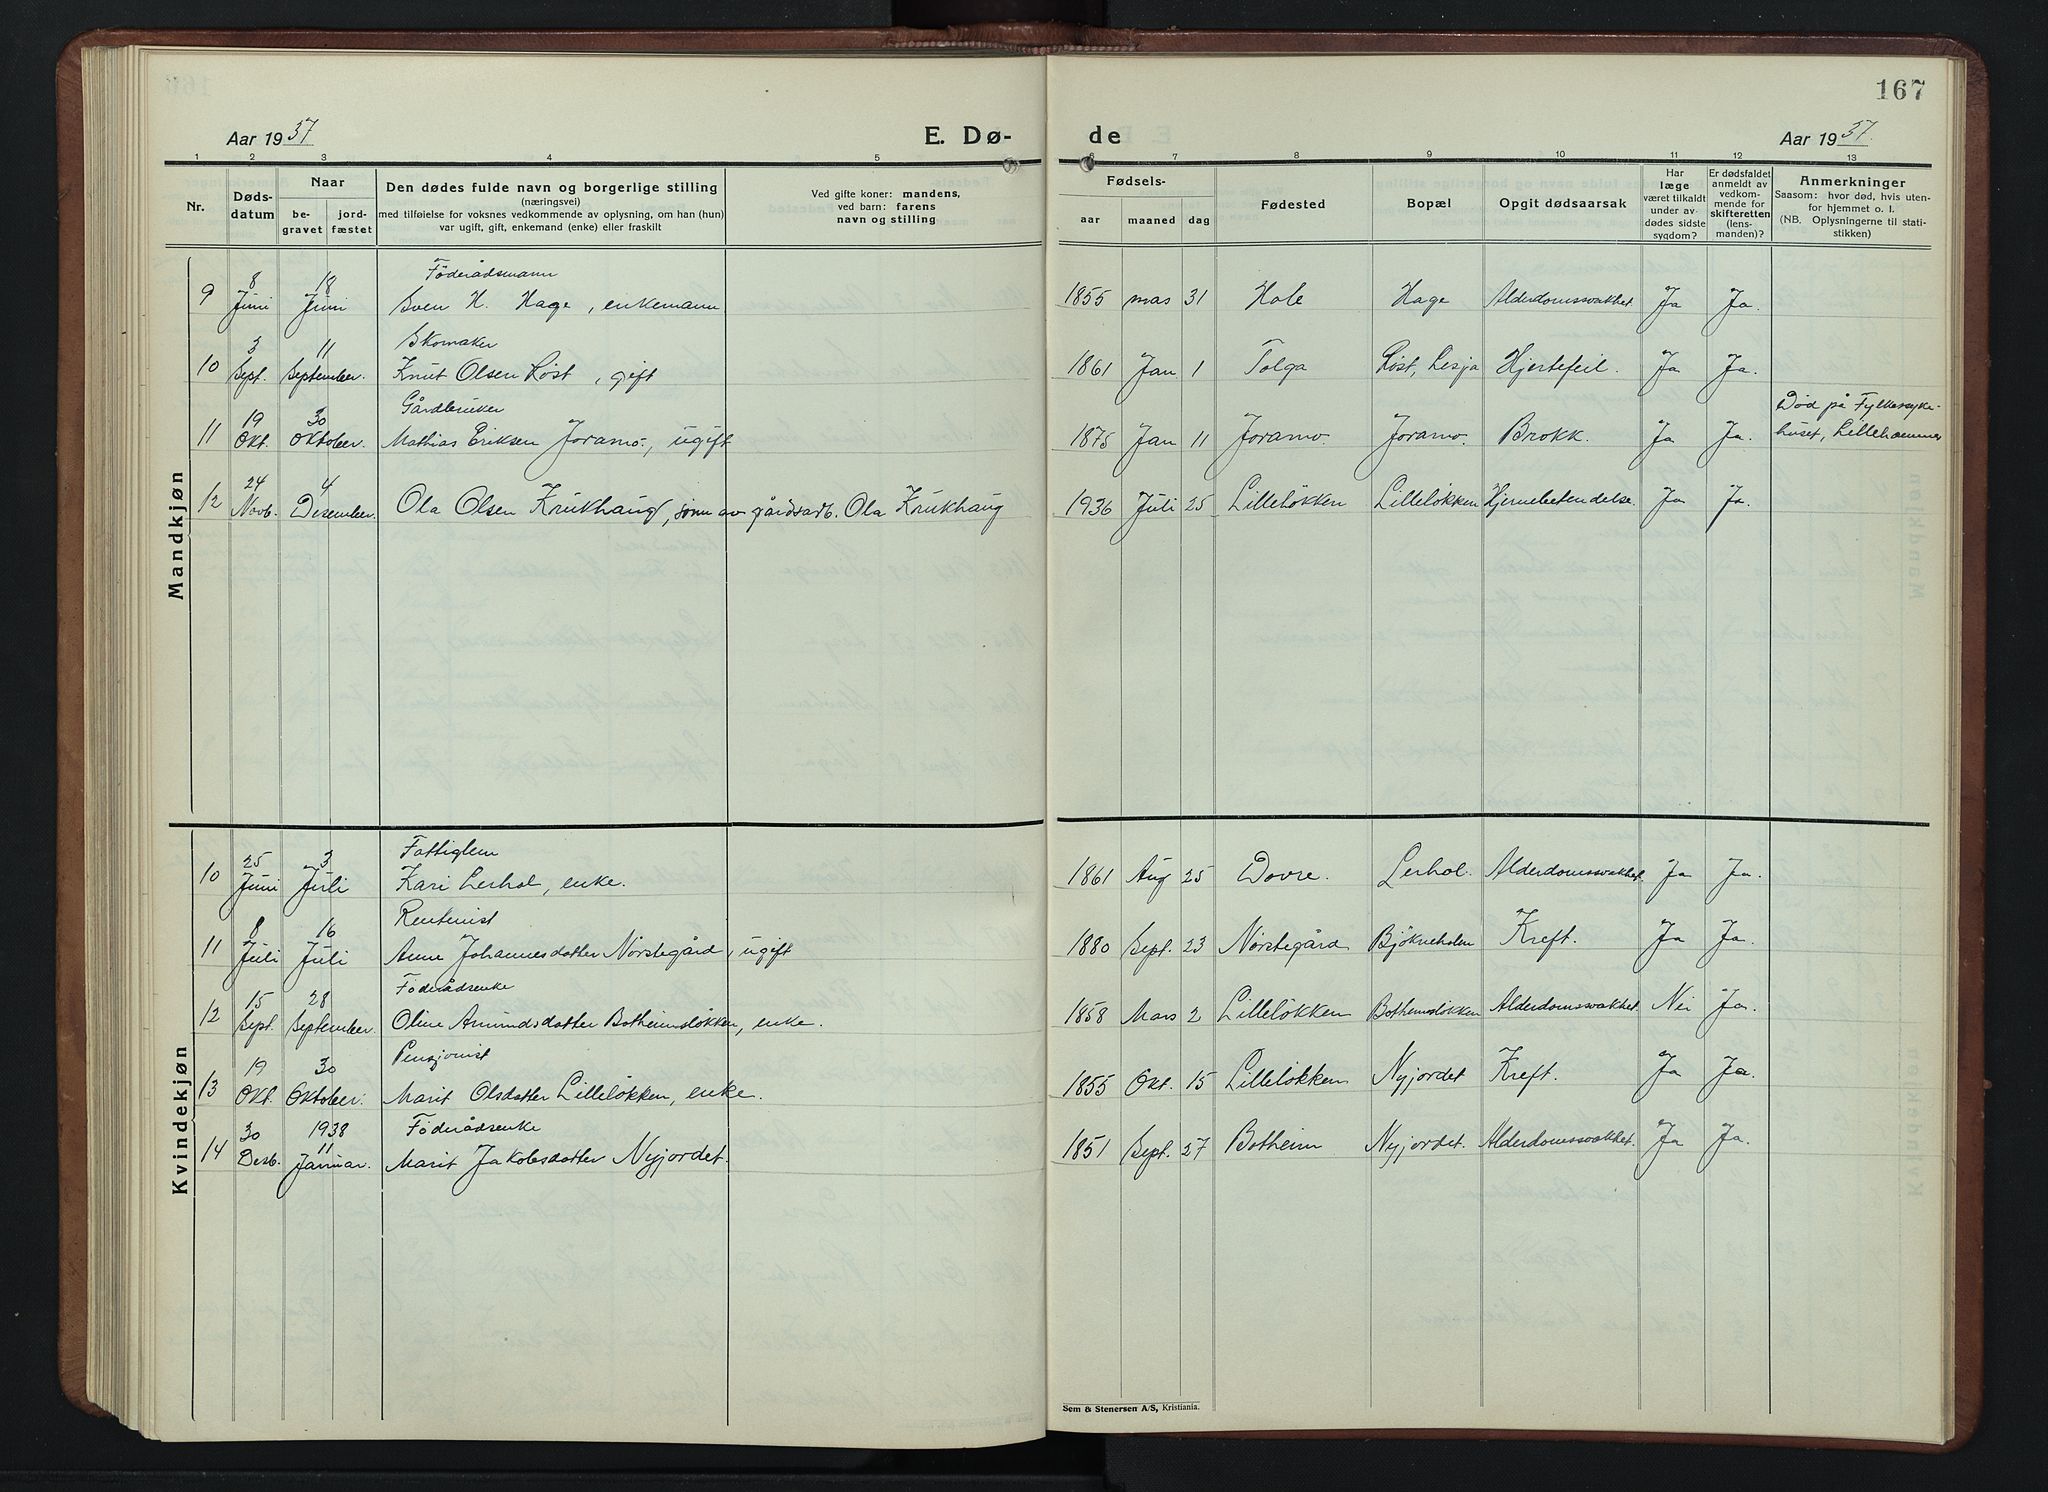 167
Aar 1937
E. Dø-
de
Aar 1937.
1 2 3 4 5 6 7 8 9 10 11 12 13
Nr.
Dødsdatum
Naar
begravet
jordfæstet
Den dødes fulde navn og borgerlige stilling
(næringsvei)
med tilføielse for voksnes vedkommende av oplysning, om han (hun)
var ugift, gift, enkemand (enke) eller fraskilt
Ved gifte koner: mandens,
ved barn: farens
navn og stilling
Fødsels-
aar maaned dag
Fødested
Bopæl
Opgit dødsaarsak
Har
læge
været tilkaldt
under av-
dødes sidste
sygdom?
Er dødsfaldet
anmeldt av
vedkom-
mende for
skifteretten
(lens-
manden)?
Anmerkninger
Saasom: hvor død, hvis uten-
for hjemmet o. l.
(NB. Oplysningerne til stati-
stikken)
Mandkjøn
8 18 Föderådsmann
9 Juni Juni Sven H. Hage, enkemann 1855 mas 31 Hole Hage Alderdomssvakhet Ja Ja.
3 11 Skomaker
10 Sept. September. Knut Olsen Löst, gift 1861 Jan 1 Tolga Löst, Lesja Hjertefeil. Ja Ja.
19 30 Gårdbruker Död på Fylkessyke-
11 Okt. Oktober. Mathias Eriksen Joramo, ugift 1875 Jan 11 Joramo. Joramo. Brokk. Ja Ja. huset, Lillehammer
24 4
12 Novb. Desember. Ola Olsen Krukhaug, sønn av gårdsarb. Ola Krukhaug 1936 Juli 25 Lillelökken Lillelökken Hjernebetendelse. Ja Ja.
Kvindekjøn
25 3 Fattiglem
10 Juni Juli Kari Lerhol, enke. 1861 Aug 25 Dovre. Lerhol. Alderdomssvakhet. Ja Ja.
8 16 Rentenist
11 Juli Juli Anne Johannesdatter Norstegård, ugift 1880 Sept. 23 Norstegård Kreft. Ja Ja.
15 28 Föderådsenke
12 Sept. September. Oline Amundsdatter Botheimslökken, enke. 1858 Mars 2 Lillelökken Botheimslökken Alderdomssvakhet. Nei Ja.
19 30 Pensjonist
13 Okt. Oktober. Marit Olsdatter Lillelökken, enke. 1855 Okt. 15 Lillelökken Nyjordet Kreft. Ja Ja.
30 1938 Föderådsenke
11
14 Desb. Januar. Marit Jakobsdatter Nyjordet. 1851 Sept. 27 Botheim Nyjordet. Alderdomssvakhet. Ja Ja.
Sem & Stenersen A/S, Kristiania.